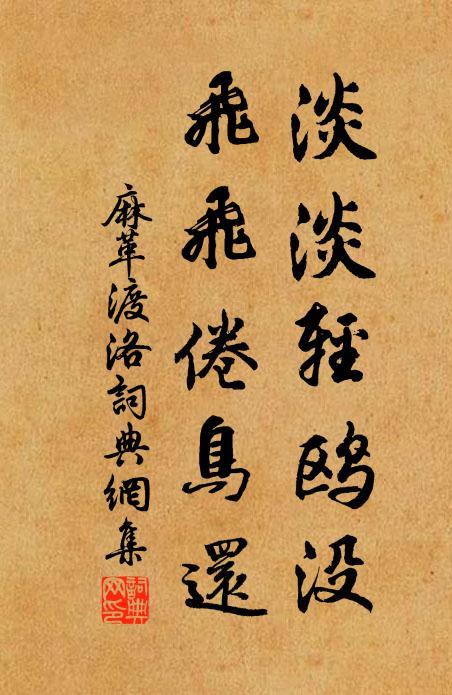 淡淡輕鸥没
飛飛倦鳥還
麻革渡洛詞典網集
詞典網印